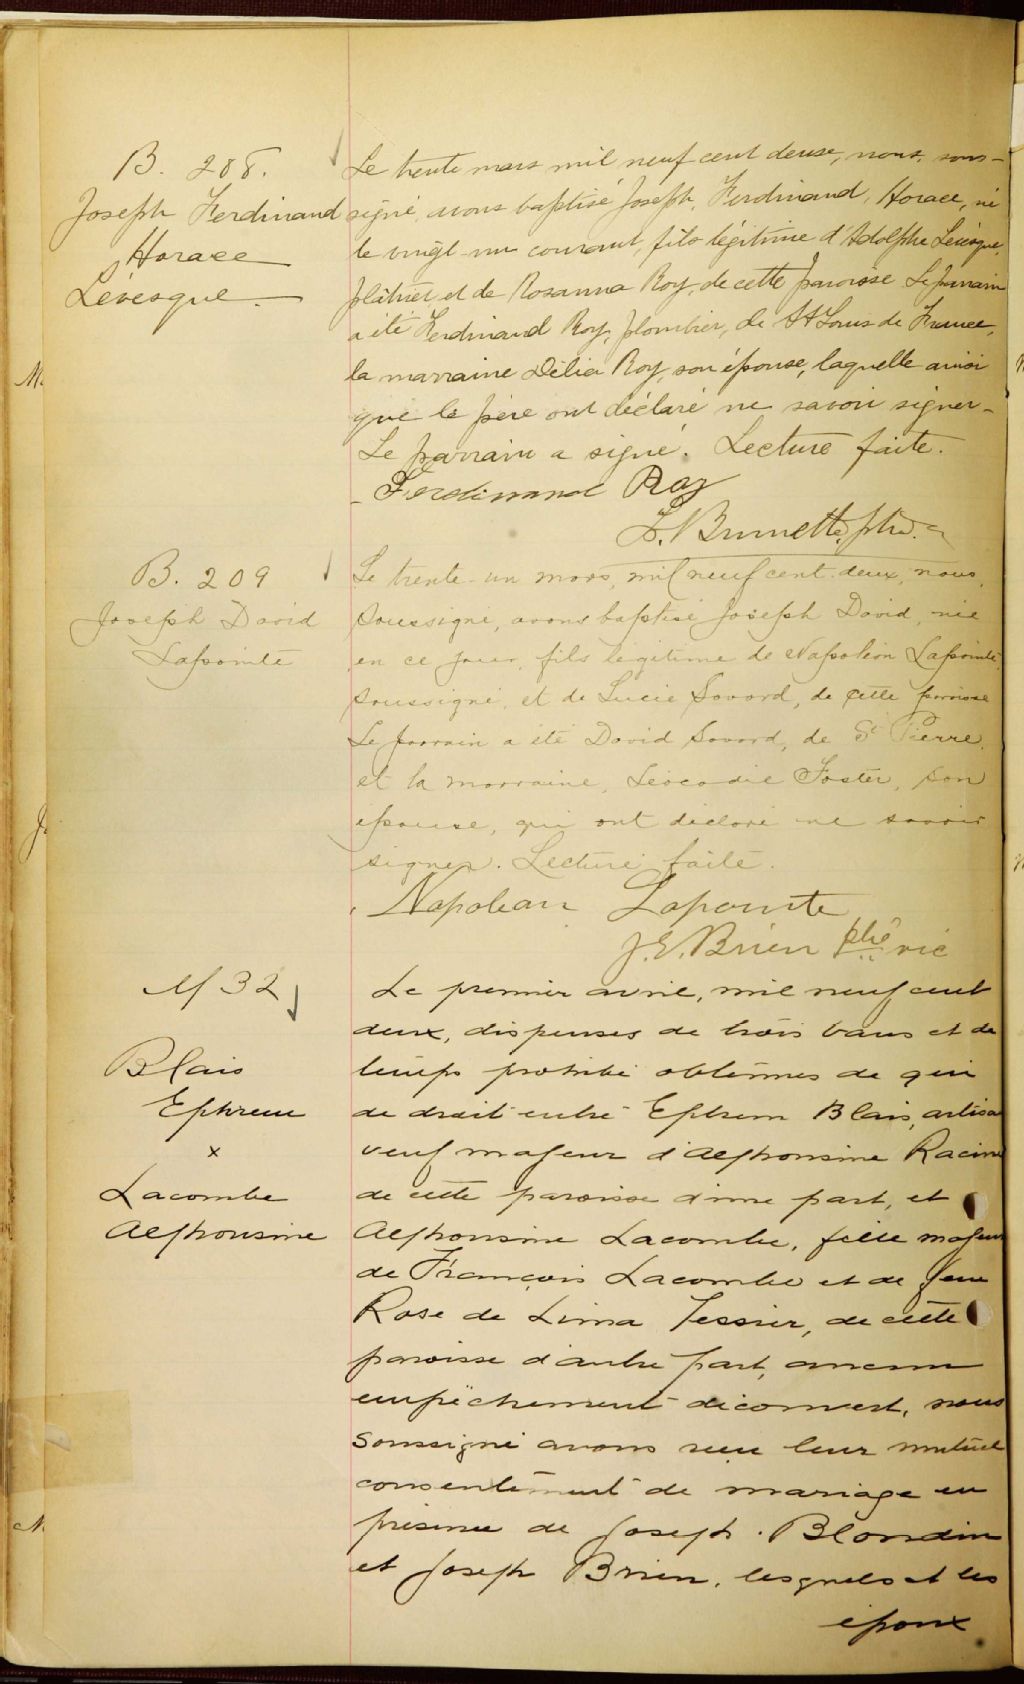 B. 208.
Joseph Ferdinand
Horace
Lévesque.
Le trente mars mil neuf cent deux, nous, sous-
signé, avons baptisé Joseph, Ferdinand, Horace, né
le vingt-un courant, fils légitime d'Adolphe Lévesque,
plâtrier, et de Rosanna Roy, de cette paroisse. Le parrain
a été Ferdinand Roy, plombier, de St Louis de France,
la marraine Délia Roy, son épouse, laquelle ainsi
que le père ont déclaré ne savoir signer-
Le parrain a signé. Lecture faite.
Ferdinand Roy
Brunette, ptre.
B. 209
Joseph David
Lapointe
Le trente-un mars, mil neuf cent deux, nous,
soussigné, avons baptisé Joseph David, née
en ce jour, fils légitime de Napoléon Lapointe,
soussigné, et de Lucie Savard, de cette paroisse
Le parrain a été David Savard, de St Pierre,
et la marraine, Léocadie Foster, son
épouse, qui ont déclaré ne savoir
signer. Lecture faite.
Napoleon Lapointe
J. E. Brien ptre vic
M 32
Blais
Ephrem
x
Lacombe
Alphonsine
Le premier avril, mil neuf cent
deux, dispenses de trois bans et de
temps prohibé obtenues de qui
de droit entre Ephrem Blais, artisan
veuf majeur d'Alphonsine Racine
de cette paroisse d'une part, et
Alphonsine Lacombe, fille majeure
de François Lacombe et de feue
Rose de Lima Tessier, de cette
paroisse d'autre part, aucun
empêchement découvert, nous
soussigné avons reçu leur mutuel
consentement de mariage en
présence de Joseph Blondin
et Joseph Brien, lesquels et les
époux